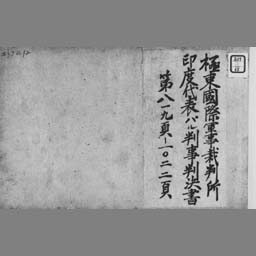 極東國際軍事裁判所
印度代表パル判事判決書
第八一九頁–一〇二二頁